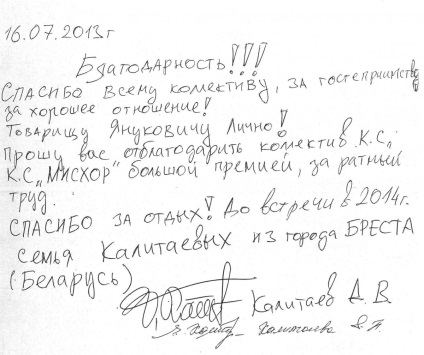 16.07.2013г
Благодарность!!!
Спасибо всему колективу, за гостеприимство
за хорошее отношение!
Товарищу Януковичу Лично!
Прошу вас отблагодарить колектив К.С,
К.С „Мисхор" большой премией, за ратный
труд.
Спасибо за отдых! До встречи в 2014г.
семья Калитаевых из города БРЕСТА
(Беларусь)
Калитаев А. В.